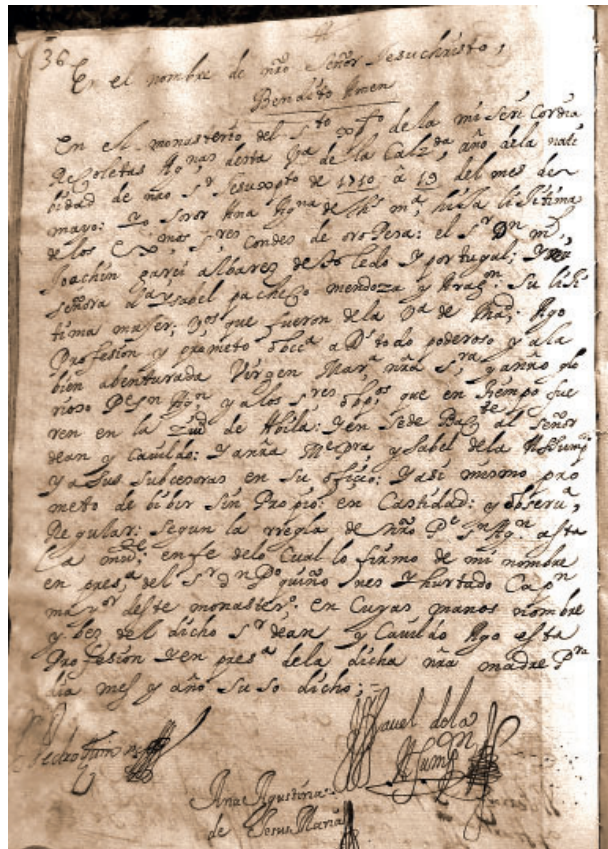 36
En el nombre de nr̃o Señor Jesuchristo,
Bendito Amen
En el monasterio del Sto Xpto de la miseri Cordia
Recoletas Agnas desta Va de la Calzda año dela nati
bidad de nr̃o Sr Jesuxpto de 1710 à 19 del mes de
mayo: Yo Sror Ana Agna de Jhs ma, hija lijitima
de los Exmos Sres Condes de oroPesa: el Sr Dn ml
Joachin garci albarez de to ledo y portugal; y
señora da ysabel pacheco mendoza y Aragn: Su liji
tima mujer; que fueron de la Va de Mad; Ago
Profesion y prometo obca a Ds todo poderoso y ala
bien abenturada Virgen Mara nr̃a Sra y anr̃o glo
rioso Pe Sn Agn y alos Sres obpos que en tiempo fue
ren en la de Abila: yen Sede Bacte al Señor
dean y Cauildo: y anr̃a Me pra ysabel dela Assump
y a sus subcesoras en su oficio: y asi mesmo pro
meto de bibir Sin Propio: en Castidad: y obserua,
Regular: Segun la rregla de nr̃o Pe Sn Agn asta
la mue: en fe delo Cual lo firmo de mi nombre
en presa del Sr Dn Po quiño nes y hurtado Capn
mayr deste monastero en Cuyas manos nombre
y bez del dicho Sr dean y Cauildo Ago esta
Profesion y en presa dela dicha nr̃a madre Pra
dia mes y año Su so dicho;
Ysauel dela
Assumpn
Ana Agustina
de Jesus Maria